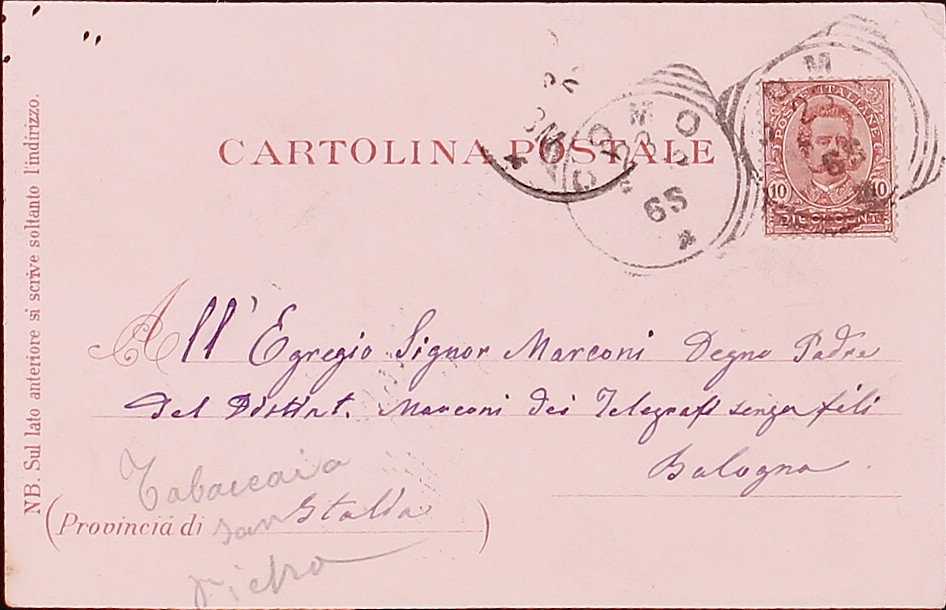 CARTOLINA POSTALE
POSTE ITALIANE
10 10
DIECI CENT.
COMO
65
NB. Sul lato anteriore si scrive soltanto l'indirizzo.
All' Egregio Signor Marconi Degno Padre
del Distint. Marconi dei Telegrafi senza fili
Bologna
Tabaccaia
(Provincia di Italia)
san
Pietro